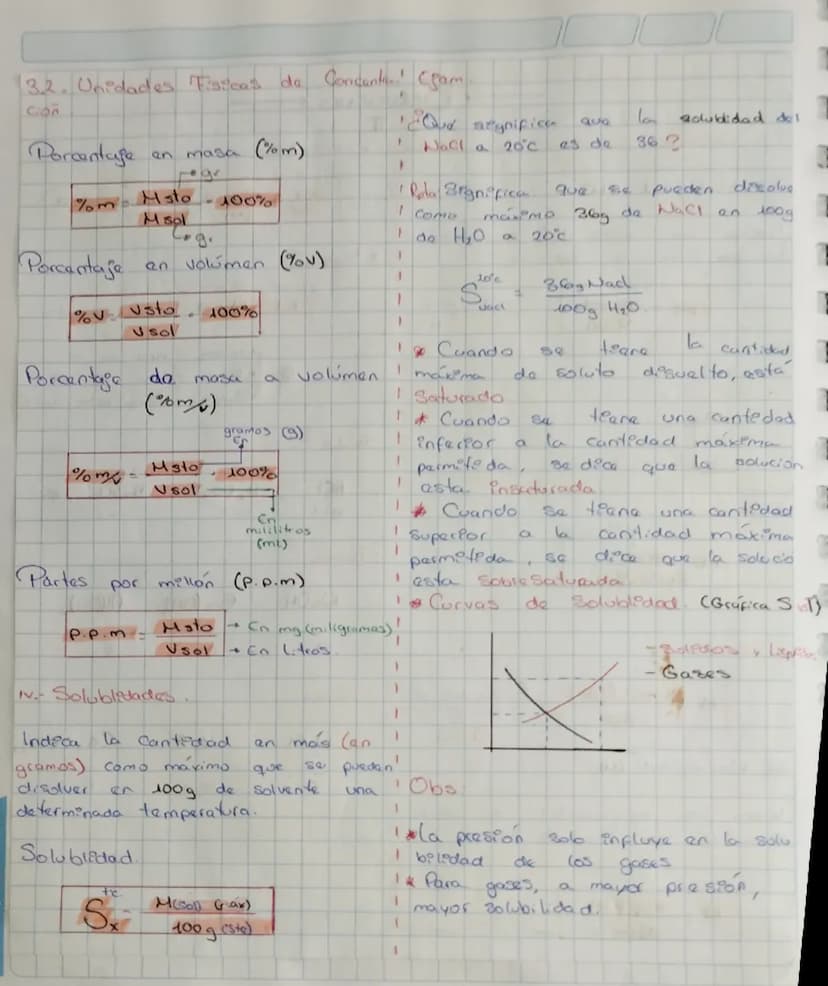 3.2. Unidades Físicas de Concentra
ción
Porcentaje en masa (%m)
g.
%m = Msto / Msol · 100%
g.
Porcentaje en volúmen (%V)
%V = Vsto / Vsol · 100%
Porcentaje de masa a volúmen
(%m/v)
gramos (g)
%m/v = Msto / Vsol · 100%
En
mililitros
(ml)
Partes por millón (p.p.m)
p.p.m = Msto / Vsol
→ En mg (miligramos)
→ En Litros.
IV.- Solubilidades.
Indica la cantidad en más (en
gramos) como máximo que se puedan
disolver en 100g de solvente una
determinada temperatura.
Solubilidad
S t°c x = M(sol) (max) / 100g (ste)
Ejam
¿Qué significa que la solubilidad del
NaCl a 20°C es de 36?
Rpta Significa que se pueden disolve
como máximo 36g de NaCl en 100g
de H₂O a 20°C
S 20°C NaCl = 36g NaCl / 100g H₂O
* Cuando se tiene la cantidad
máxima de soluto disuelto, está
Saturado
* Cuando se tiene una cantidad
inferior a la cantidad máxima
permitida, se dice que la solución
esta insaturada
* Cuando se tiene una cantidad
superior a la cantidad máxima
permitida, se dice que la solució
esta Sobresaturada
* Curvas de Solubilidad (Gráfica S T)
- Gases
Obs
* La presión solo influye en la solu
bilidad de los gases
* Para gases, a mayor presión,
mayor solubilidad.